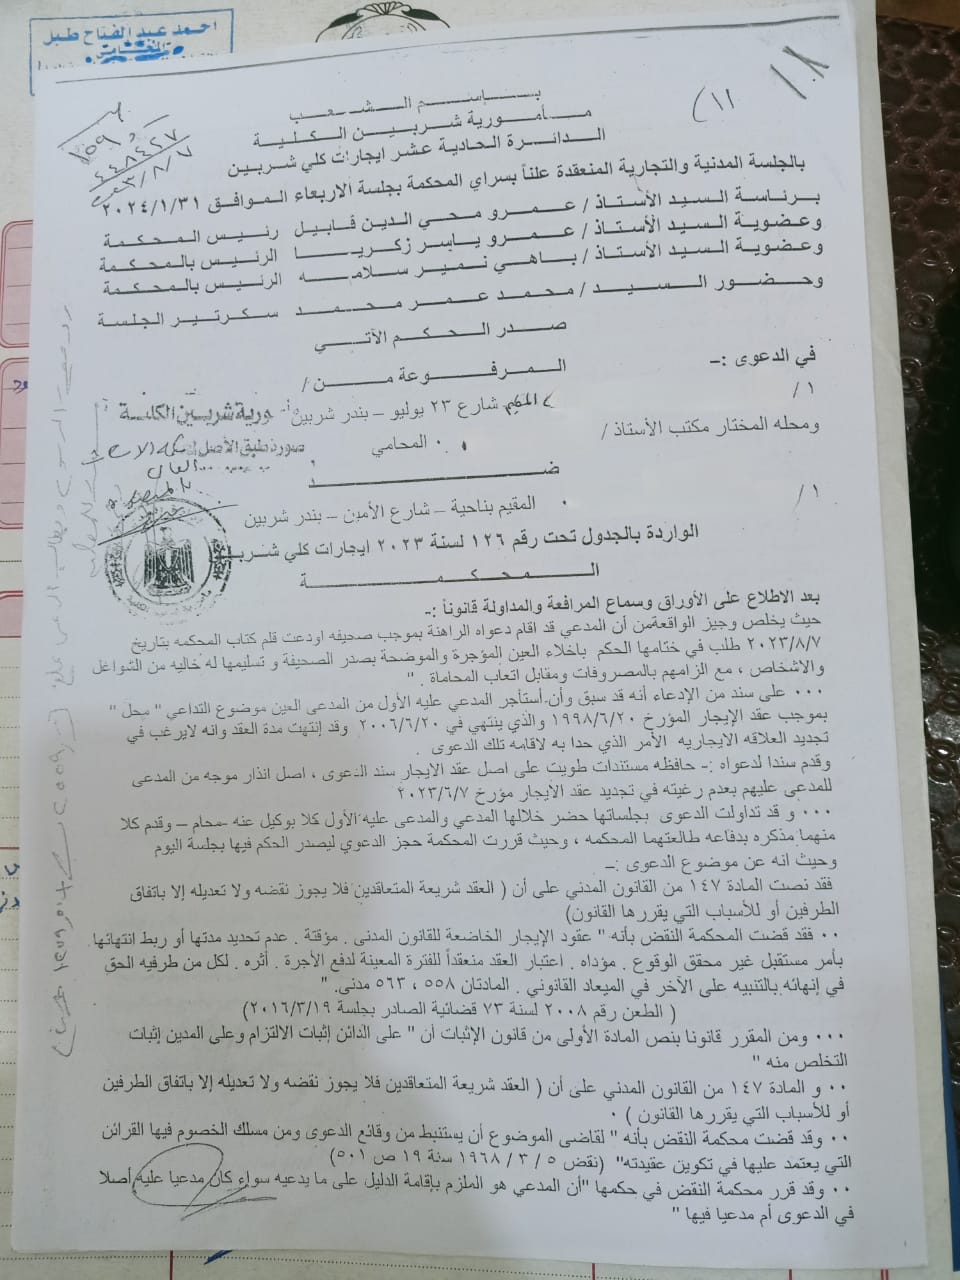 احمد عبد الفتاح طبل
(١١
١٠٨
بإسم الشعب
مأمورية شربين الكلية
الدائرة الحادية عشر ايجارات كلي شربين
بالجلسة المدنية والتجارية المنعقدة علناً بسراي المحكمة بجلسة الاربعاء الموافق ٢٠٢٤/١/٣١
برئاسة السيد الأستاذ / عمرو محي الدين قابيل رئيس المحكمة
وعضوية السيد الأستاذ / عمرو ياسر زكريا الرئيس بالمحكمة
وعضوية السيد الأستاذ / باهي نمير سلامه الرئيس بالمحكمة
وحضور السيد / محمد عمر محمد سكرتير الجلسة
صدر الحكم الآتي
في الدعوى :-
المرفوعة من /
١ /
المقيم شارع ٢٣ يوليو – بندر شربين
ومحله المختار مكتب الأستاذ / المحامي
ضد
١ / المقيم بناحية – شارع الأمين – بندر شربين
الواردة بالجدول تحت رقم ١٢٦ لسنة ٢٠٢٣ ايجارات كلي شربين
المحكمة
بعد الاطلاع على الأوراق وسماع المرافعة والمداولة قانوناً :-
حيث يخلص وجيز الواقعةمن أن المدعي قد اقام دعواه الراهنة بموجب صحيفه اودعت قلم كتاب المحكمه بتاريخ
٢٠٢٣/٨/٧ طلب في ختامها الحكم باخلاء العين المؤجرة والموضحة بصدر الصحيفة و تسليمها له خاليه من الشواغل
والاشخاص ، مع الزامهم بالمصروفات ومقابل اتعاب المحاماة . "
٠٠٠ على سند من الإدعاء أنه قد سبق وأن استأجر المدعي عليه الأول من المدعي العين موضوع التداعي " محل "
بموجب عقد الإيجار المؤرخ ١٩٩٨/٦/٢٠ والذي ينتهي في ٢٠٠٦/٦/٢٠ وقد إنتهت مدة العقد وانه لايرغب في
تجديد العلاقه الايجاريه الأمر الذي حدا به لاقامه تلك الدعوى .
وقدم سندا لدعواه :- حافظه مستندات طويت على اصل عقد الايجار سند الدعوى ، اصل انذار موجه من المدعى
للمدعى عليهم بعدم رغبته في تجديد عقد الايجار مؤرخ ٢٠٢٣/٦/٧
٠٠٠ و قد تداولت الدعوى بجلساتها حضر خلالها المدعي والمدعى عليه الأول كلا بوكيل عنه -محام – وقدم كلا
منهما مذكره بدفاعه طالعتهما المحكمه ، وحيث قررت المحكمة حجز الدعوي ليصدر الحكم فيها بجلسة اليوم
وحيث انه عن موضوع الدعوى :-
فقد نصت المادة ١٤٧ من القانون المدني على أن ( العقد شريعة المتعاقدين فلا يجوز نقضه ولا تعديله إلا باتفاق
الطرفين أو للأسباب التي يقررها القانون)
٠٠ فقد قضت المحكمة النقض بأنه " عقود الإيجار الخاضعة للقانون المدنى . مؤقتة . عدم تحديد مدتها أو ربط انتهائها
بأمر مستقبل غير محقق الوقوع . مؤداه . اعتبار العقد منعقداً للفترة المعينة لدفع الأجرة . أثره . لكل من طرفيه الحق
في إنهائه بالتنبيه على الآخر في الميعاد القانوني . المادتان ٥٥٨ ، ٥٦٣ مدنى. "
( الطعن رقم ٢٠٠٨ لسنة ٧٣ قضائية الصادر بجلسة ٢٠١٦/٣/١٩)
٠٠٠ ومن المقرر قانونا بنص المادة الأولى من قانون الإثبات أن " على الدائن إثبات الالتزام وعلي المدين إثبات
التخلص منه "
٠٠ و المادة ١٤٧ من القانون المدني على أن ( العقد شريعة المتعاقدين فلا يجوز نقضه ولا تعديله إلا باتفاق الطرفين
أو للأسباب التي يقررها القانون ) ٠
٠٠ وقد قضت محكمة النقض بأنه " لقاضى الموضوع أن يستنبط من وقائع الدعوى ومن مسلك الخصوم فيها القرائن
التي يعتمد عليها في تكوين عقيدته" (نقض ٥ / ٣ / ١٩٦٨ سنة ١٩ ص ٥٠١)
٠٠ وقد قرر محكمة النقض في حكمها "أن المدعي هو الملزم بإقامة الدليل على ما يدعيه سواء كان مدعيا عليه أصلا
في الدعوى أم مدعيا فيها "